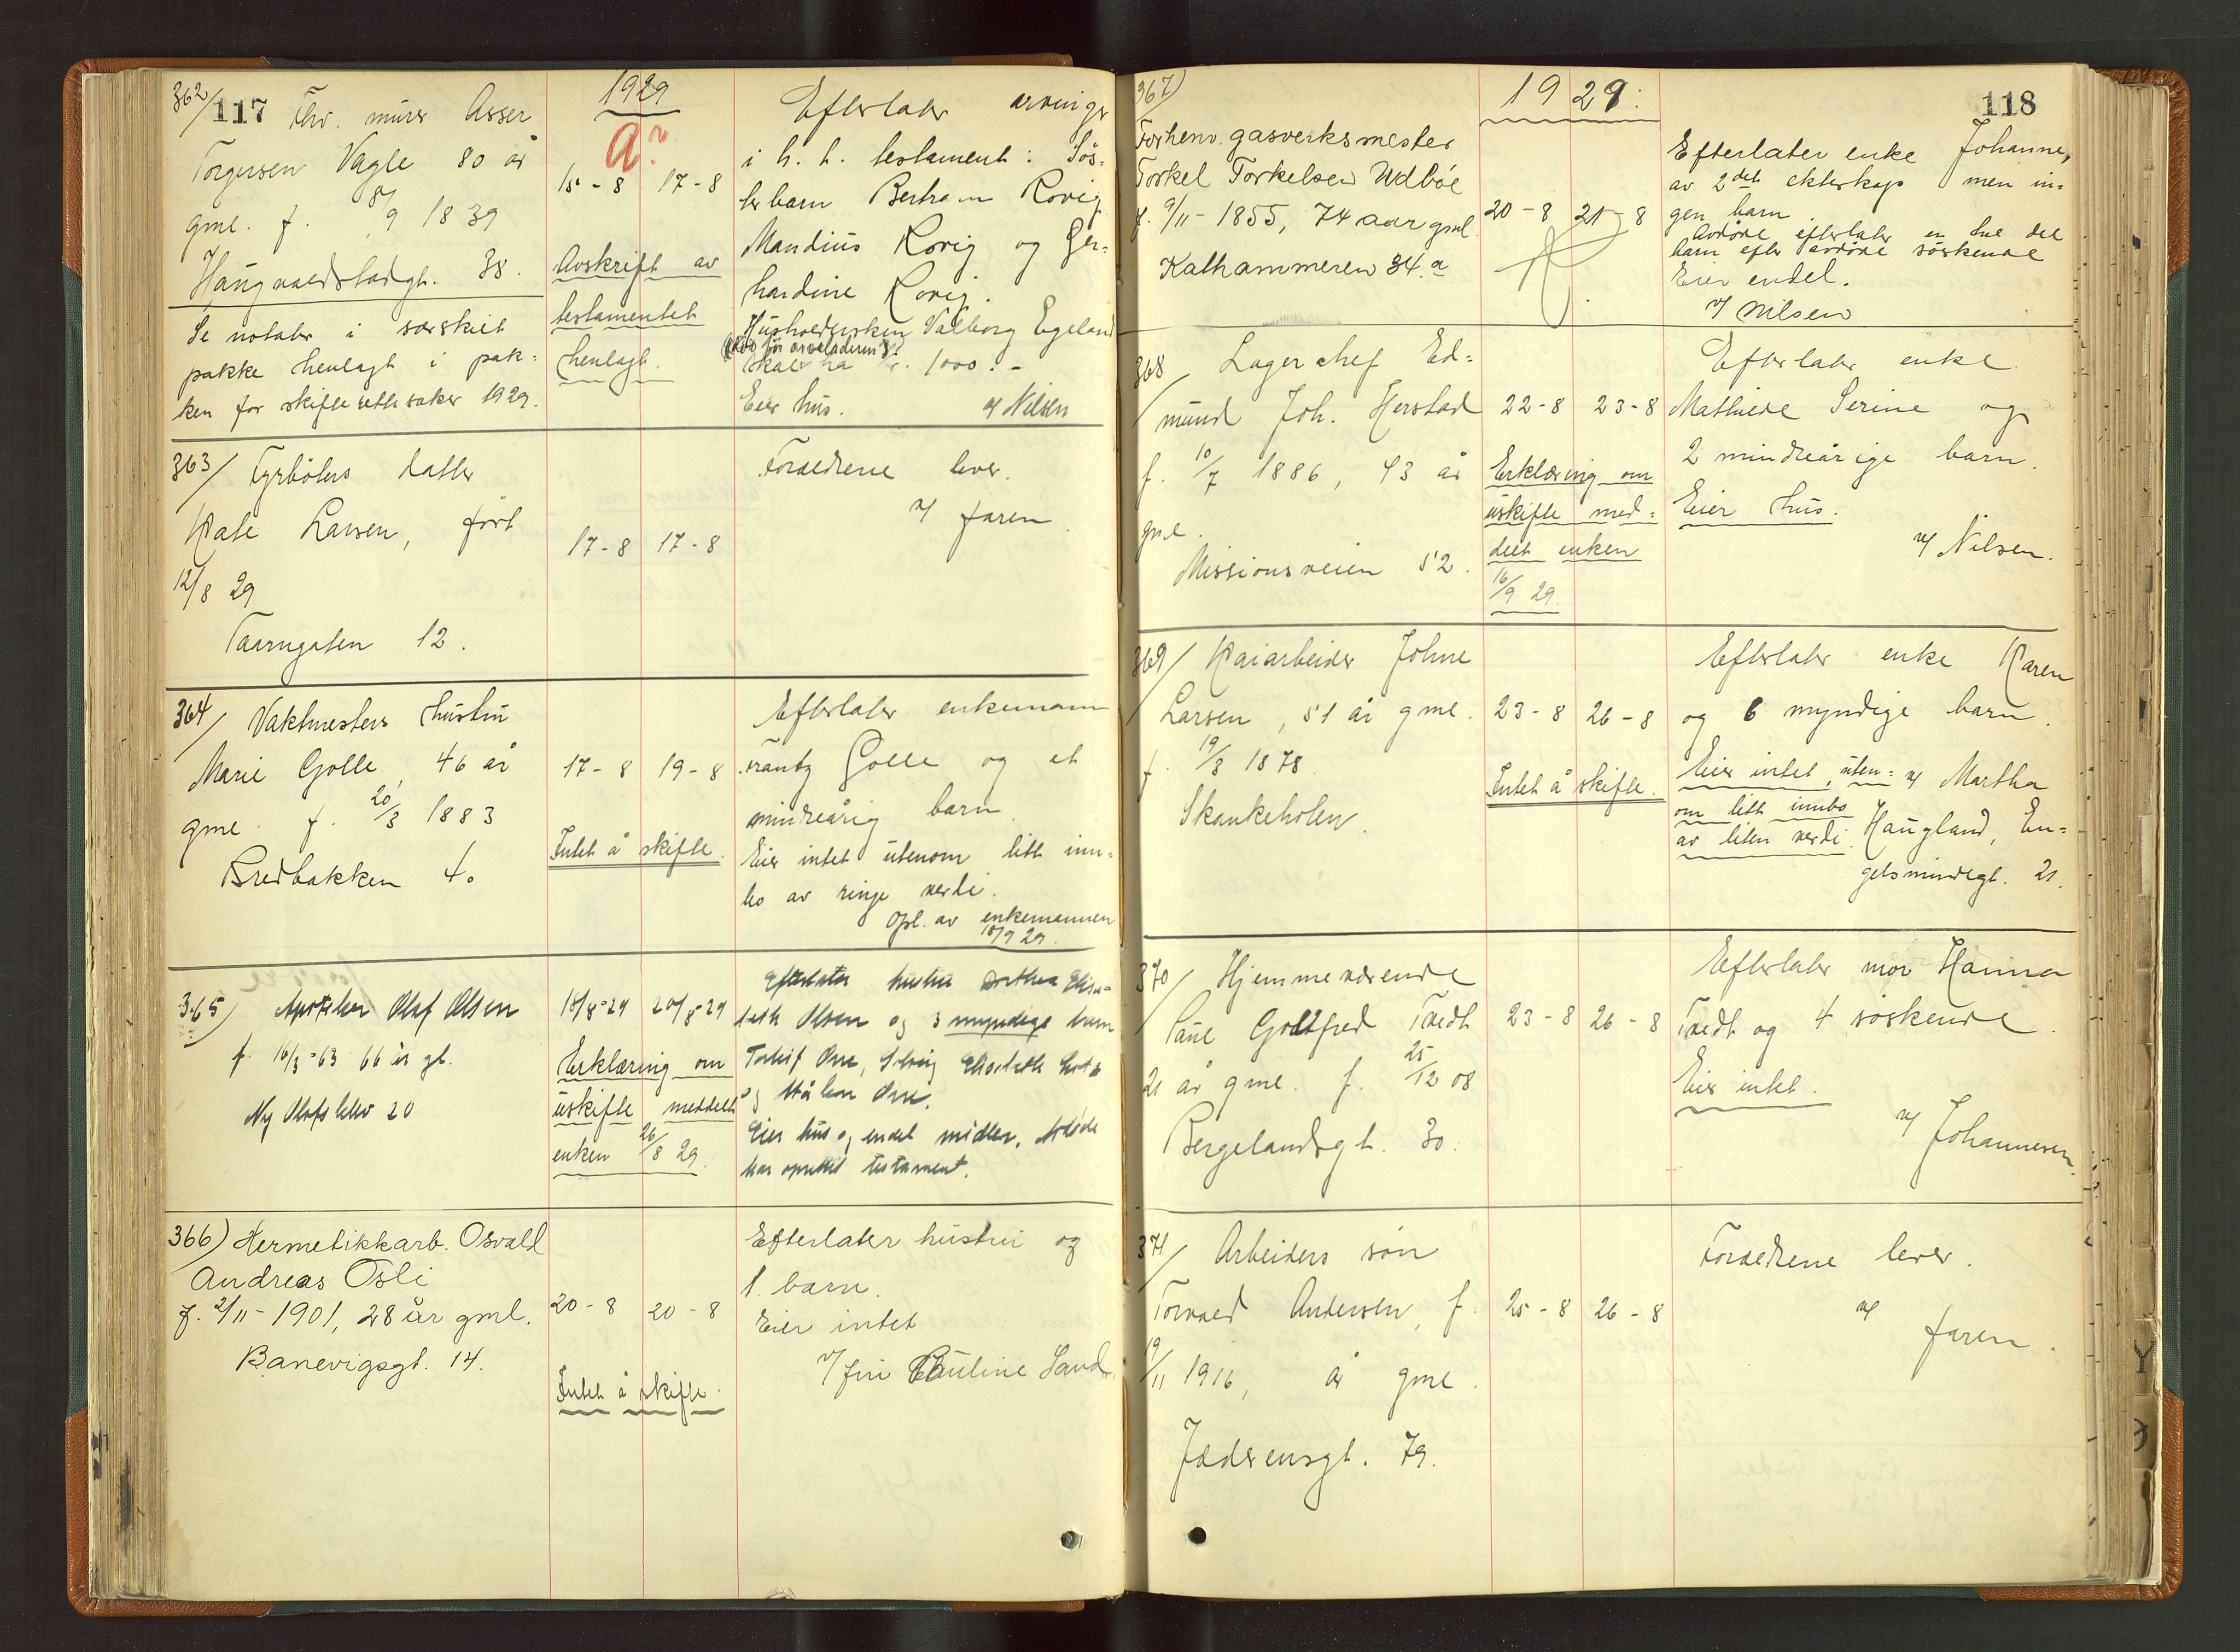 1929
362/ 117 Fhv. murer Asser
Torgersen Vagle 80 år
gml. f. 8/9 1839
Haugvaldstadgt. 38.
Se notater i særskilt
pakke henlagt i pak-
ken for skifterettssaker 1929.
15-8 17-8
Avskrift av
testamentet
henlagt.
Efterlater arvinger
i h. t. testament: Søs-
terbarn Bertram Rovig
Mandius Rovig og Ger-
hardine Rovig.
Husholdersken Valborg Egeland
skal ha kr. 1000.-
Eier hus. v/ Nilsen
363/ Fyrbøters datter
Kate Larsen, født
12/8 29
Taarngaten 12.
17-8 17-8
Foreldrene lever.
v/ faren.
364/ Vaktmesters hustru
Marie Golle, 46 år
gml. f. 20/3 1883
Bredbakken 4.
17-8 19-8
Intet å skifte.
Efterlater enkemann
Frantz Golle og et
mindreårig barn.
Eier intet utenom litt inn-
bo av ringe verdi.
Opl. av enkemannen
18/9 29.
365) Apoteker Olaf Olsen
f. 16/3-63 66 år gl.
Ny Olafsklev 20
18/8-29 20/8-29
Erklæring om
uskifte meddelt
enken 26/8 29.
Efterlater hustru Dorthea Elisa-
beth Olsen og 3 myndige barn
og Håkon
Eier hus og endel midler. Avdøde
har oprettet testament.
366) Hermetikkarb. Osvald
Andreas Osli
f. 2/11-1901, 28 år gml.
Banevigsgt. 14.
20-8 20-8
Intet å skifte.
Efterlater hustru og
1 barn.
Eier intet
v/ fru Pauline Sand.
1929. 118
367)
Forhenv. gasverksmester
Torkel Torkelsen Udbøe
f. 9/11-1855, 74 aar gml.
Kalhammeren 34.a
20-8 21-8
Efterlater enke Johanne,
av 2det ekteskap men in-
gen barn.
Avdøde efterlater en hel del
barn efter avdøde søskende
Eier endel.
v/ Nilsen
368/ Lagerchef Ed-
mund Joh. Herstad
f. 10/7 1886, 43 år
gml.
Missionsveien 52.
22-8 23-8
Erklæring om
uskifte med-
delt enken
16/9 29.
Efterlater enke
Mathilde Serine og
2 mindreårige barn.
Eier hus.
v/ Nilsen.
369/ Kaiarbeider Johne
Larsen, 51 år gml.
f. 19/8 1878
Skankeholen.
23-8 26-8
Intet å skifte.
Efterlater enke Karen
og 6 myndige barn.
Eier intet, uten- v/ Martha
om litt innbo
av liten verdi. Haugland, En-
gelsmindegt. 21.
370/ Hjemmeværende
Paul Gottfred Tvedt
21 år gml. f. 25/12 08
Bergelandsgt. 30.
23-8 26-8
Efterlater mor Hanna
Tvedt og 4 søskende.
Eier intet.
v/ Johannesen.
371/ Arbeiders sønn
Torvald Andersen, f.
19/11 1916, år gml.
Jæderensgt. 79.
25-8 26-8
Foreldrene lever.
v/ faren.